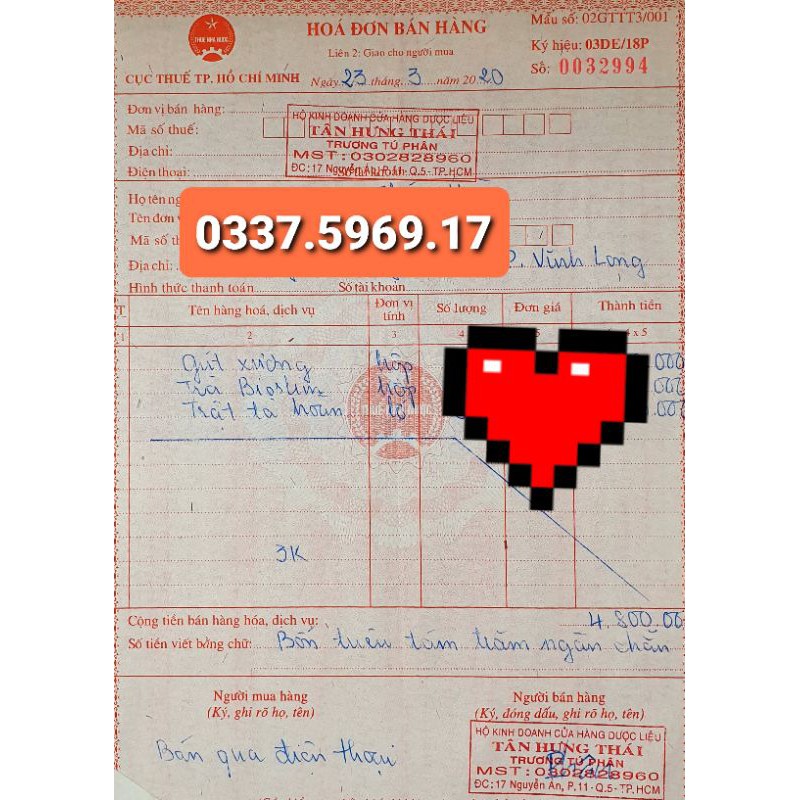 HOÁ ĐƠN BÁN HÀNG
Mẫu số: 02GTTT3/001
Liên 2: Giao cho người mua
Ký hiệu: 03DE/18P
THUẾ NHÀ NƯỚC
CỤC THUẾ TP. HỒ CHÍ MINH
Ngày 23 tháng 3 năm 2020
Số: 0032994
Đơn vị bán hàng:
Mã số thuế:
Địa chỉ:
Điện thoại:
HỘ KINH DOANH CỬA HÀNG DƯỢC LIỆU
TÂN HƯNG THÁI
TRƯƠNG TÚ PHÂN
MST: 0302828960
ĐC: 17 Nguyễn An, P.11 - Q.5 - TP.HCM
Họ tên ng
Tên đơn v
Mã số th
0337.5969.17
Địa chỉ: P. Vĩnh Long
Hình thức thanh toán Số tài khoản
T Tên hàng hoá, dịch vụ Đơn vị tính Số lượng Đơn giá Thành tiền
1 2 3 4 5 4 x 5
Gút xương hộp 000
Trà hộp 000
Trật tả hoàn lọ 000
3K
Cộng tiền bán hàng hóa, dịch vụ: 4.800.00
Số tiền viết bằng chữ: Bốn triệu tám trăm ngàn chẵn
Người mua hàng Người bán hàng
(Ký, ghi rõ họ, tên) (Ký, đóng dấu, ghi rõ họ, tên)
Bán qua điện thoại
HỘ KINH DOANH CỬA HÀNG DƯỢC LIỆU
TÂN HƯNG THÁI
TRƯƠNG TÚ PHÂN
MST: 0302828960
ĐC: 17 Nguyễn An, P.11 - Q.5 - TP.HCM